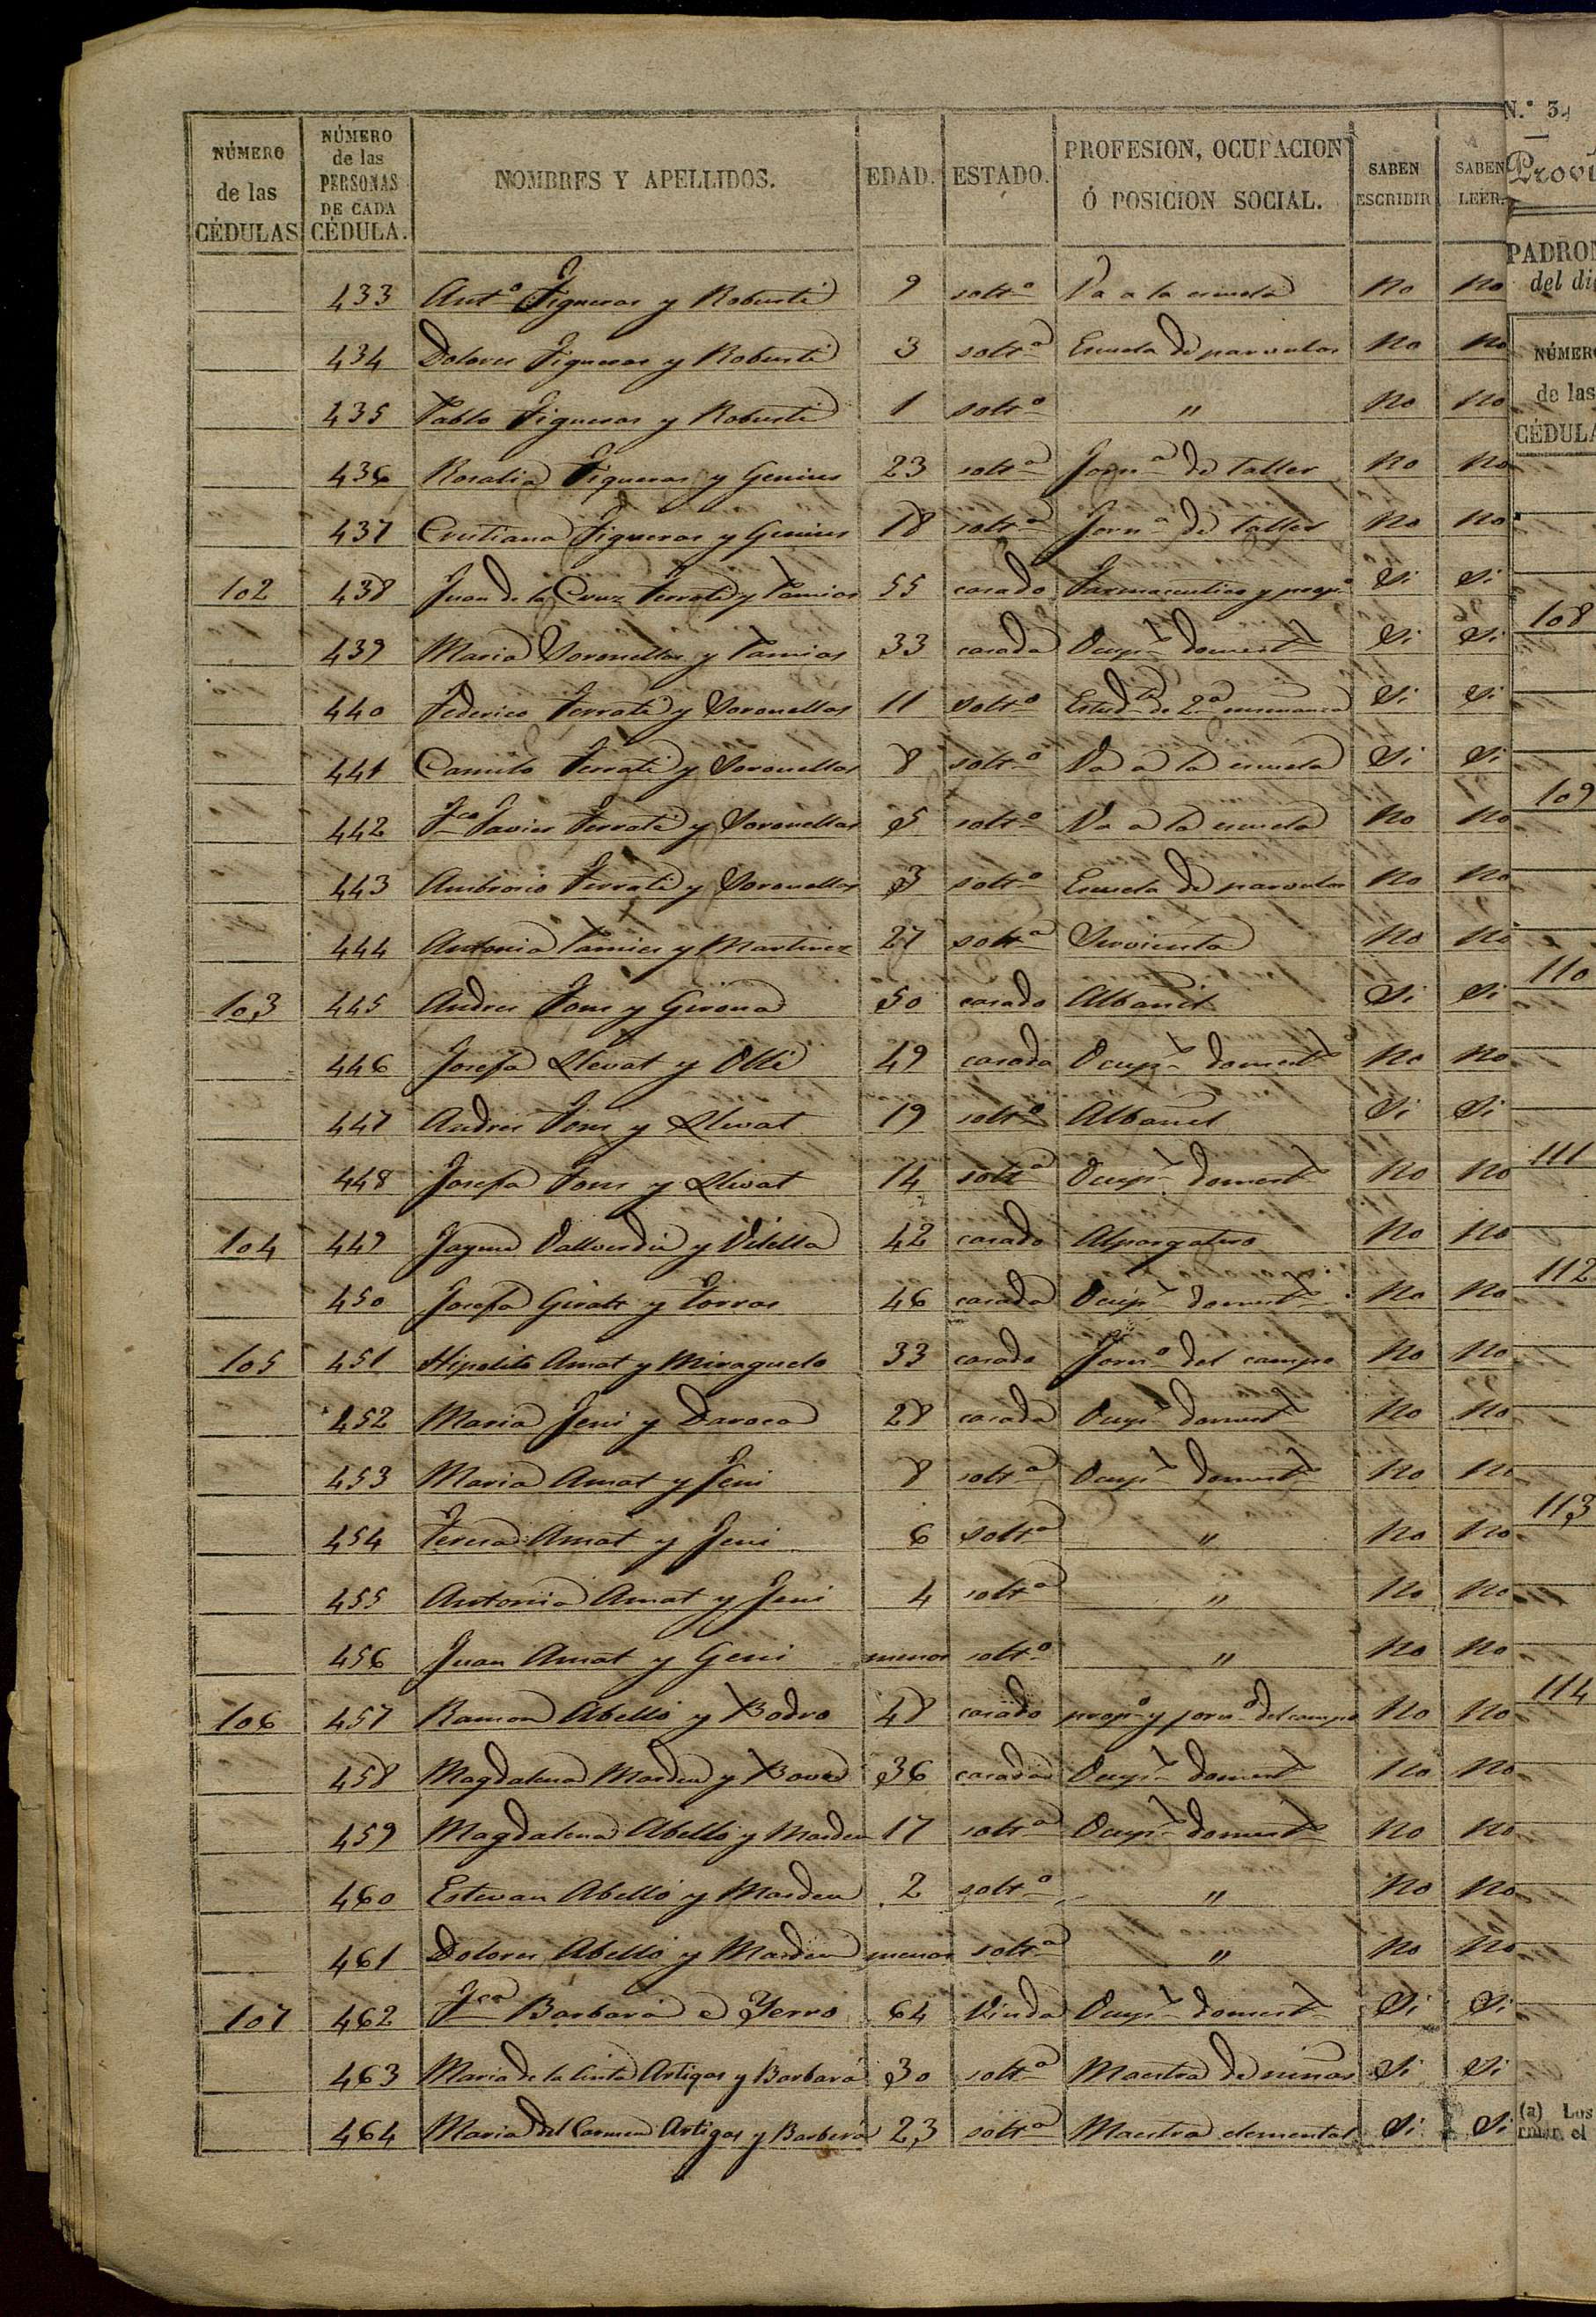 NÚMERO de las CÉDULAS | NÚMERO de las PERSONAS DE CADA CÉDULA. | NOMBRES Y APELLIDOS. | EDAD. | ESTADO. | PROFESION, OCUPACION Ó POSICION SOCIAL. | SABEN ESCRIBIR | SABEN LEER.
433 Antº Figueras y Robusté 9 soltº Va a la escuela No No
434 Dolores Figueras y Robusté 3 soltª Escuela de parvulos No No
435 Pablo Figueras y Robusté 1 soltº " No No
436 Rosalia Figueras y Genius 23 soltª Jornª de taller No No
437 Cristiana Figueras y Genius 18 soltª Jornª de taller No No
102 438 Juan de la Cruz Ferraté y Tamies 55 casado Farmaceutico y propº Si Si
439 Maria Soronellas y Tamies 33 casada Ocupª domestª Si Si
440 Federico Ferraté y Soronellas 11 soltº Estudte de 2ª ensenanza Si Si
441 Camilo Ferraté y Soronellas 8 soltº Va a la escuela Si Si
442 Fco Javier Ferraté y Soronellas 5 soltº Va a la escuela No No
443 Ambrosio Ferraté y Soronellas 3 soltº Escuela de parvulos No No
444 Antonia Tamies y Martinez 27 soltª Sirvienta No No
103 445 Andres Fons y Girona 50 casado Albañil Si Si
446 Josefa Llevat y Ollé 49 casada Ocupª domestª No No
447 Andres Fons y Llevat 19 soltº Albañil Si Si
448 Josefa Fons y Llevat 14 soltª Ocupª domestª No No
104 449 Jayme Vallverdú y Vilella 42 casado Alpargatero No No
450 Josefa Giralt y Torras 46 casada Ocupª domestª No No
105 451 Hipolito Amat y Miraguelo 33 casado Jornº del campo No No
452 Maria Jeni y Daroca 28 casada Ocupª domestª No No
453 Maria Amat y Jeni 8 soltª Ocupª domestª No No
454 Teresa Amat y Jeni 6 soltª " No No
455 Antonia Amat y Jeni 4 soltª " No No
456 Juan Amat y Geni menor soltº " No No
106 457 Ramon Abelló y Bodro 48 casado propº y jornº del campo No No
458 Magdalena Masdeu y Bové 36 casada Ocupª domestª No No
459 Magdalena Abelló y Masdeu 17 soltª Ocupª domestª No No
460 Estevan Abelló y Masdeu 2 soltº " No No
461 Dolores Abelló y Masdeu menor soltª " No No
107 462 Fca Barbará e Yerro 64 Viuda Ocupª domestª Si Si
463 Maria de la Cinta Artigas y Barbará 30 soltª Maestra de niñas Si Si
464 Maria del Carmen Artigas y Barbará 23 soltª Maestra elemental Si Si
N.º 3.
Provi
PADRON
del di
NÚMERO
de las
CÉDULA
108
109
110
111
112
113
114
(a) Los
rmar el